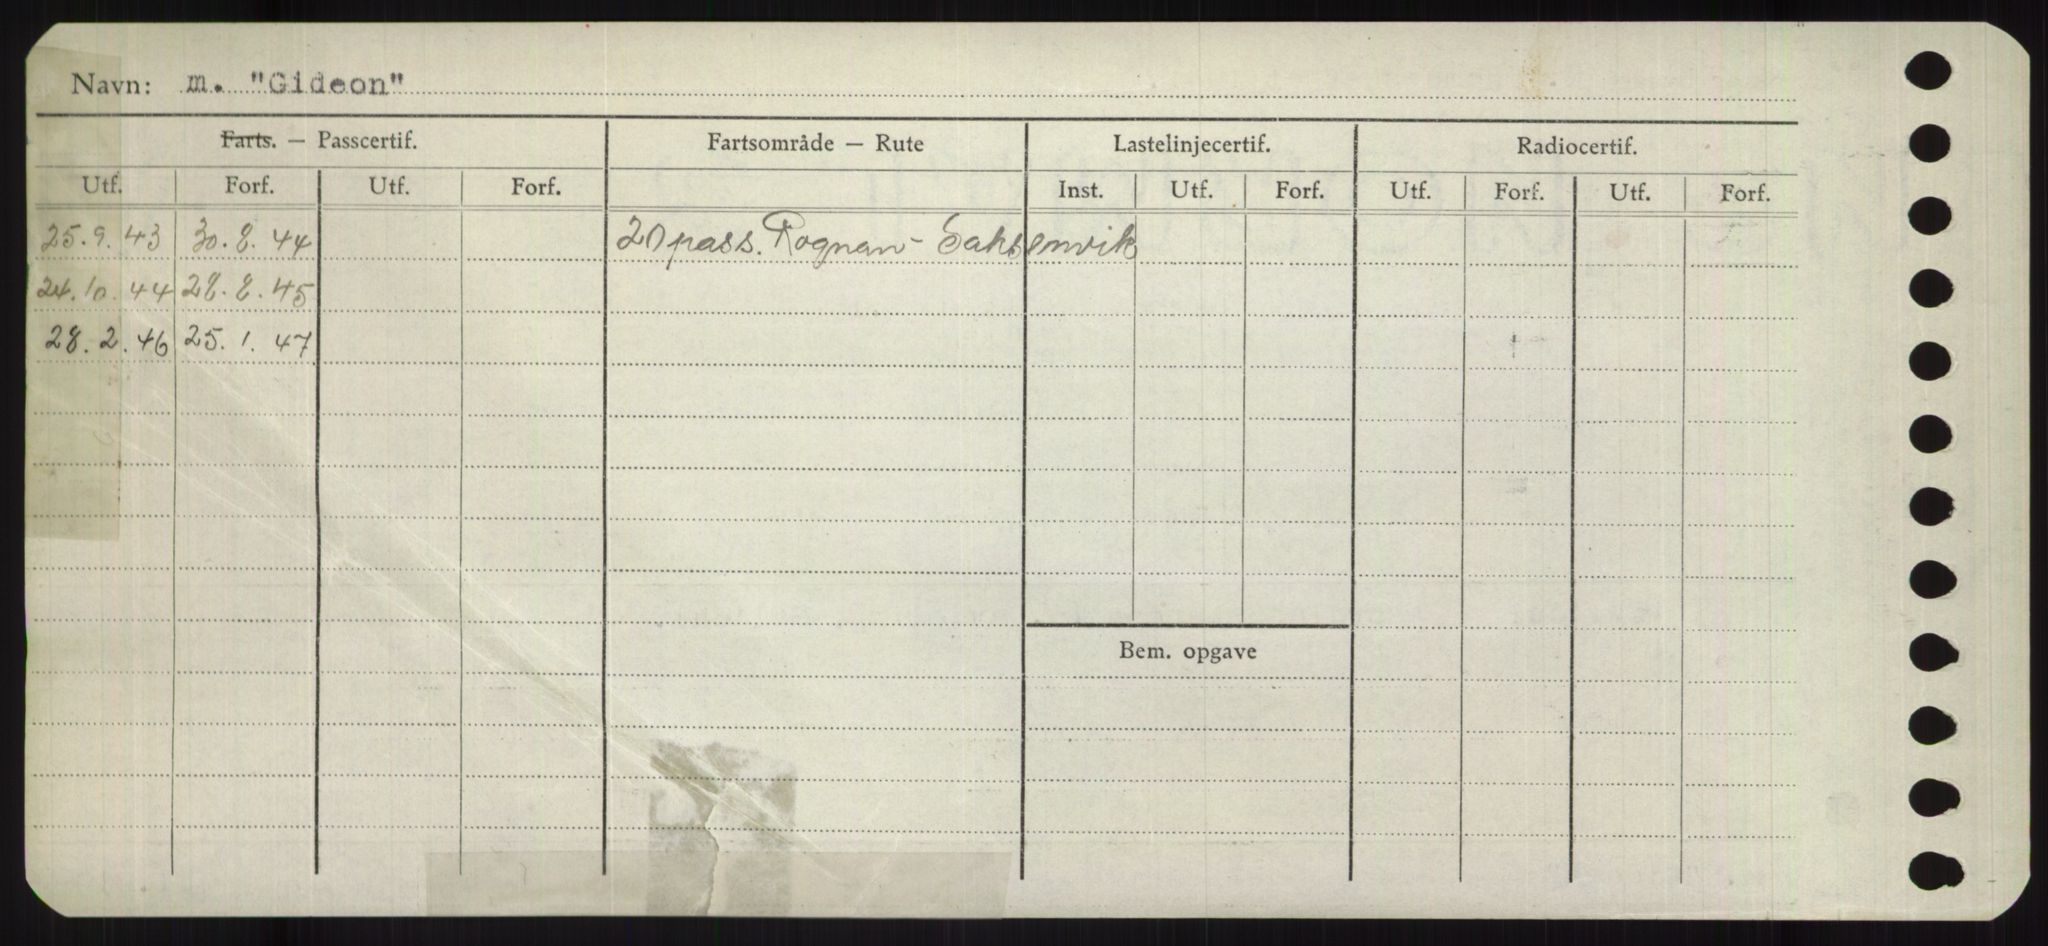 Navn: m. "Gideon"
Farts. — Passcertif. Fartsområde — Rute Lastelinjecertif. Radiocertif.
Utf. Forf. Utf. Forf. Inst. Utf. Forf. Utf. Forf. Utf. Forf.
25.9.43 30.8.44 20 pass. Rognan - Saksenvik
24.10.44 28.8.45
28.2.46 25.1.47
Bem. opgave